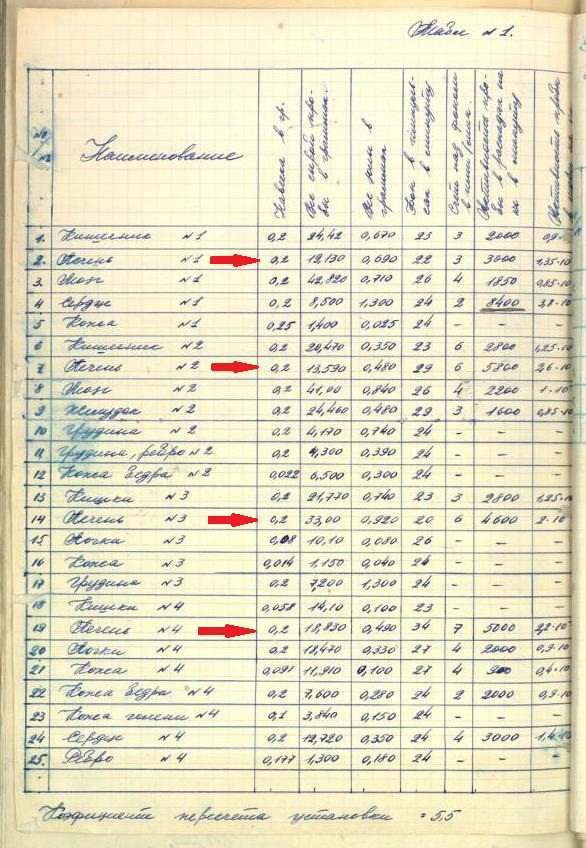 Табл N 1.
№/№ Наименование Навеска в гр. Вес сырой пробы в граммах. Вес золы в граммах Фон в импульсах в минуту Счёт над фоном в имп/мин. Активность пробы в распадах на в минуту
1. Кишечник N1 0,2 24,42 0,670 23 3 2000 0,9·
2. Печень N1 0,2 19,130 0,690 22 3 3000 1,35·10
3. Мозг N1 0,2 42,820 0,710 26 4 1850 0,85·10
4 Сердце N1 0,2 8,500 1,300 24 2 8400 3,8·10
5 Кожа N1 0,25 1,400 0,025 24 – – –
6 Кишечник N2 0,2 20,470 0,350 23 6 2800 1,25·10
7 Печень N2 0,2 13,590 0,480 29 6 5800 2,6·10
8 Мозг N2 0,2 41,00 0,840 26 4 2200 1·10
9 Желудок N2 0,2 24,460 0,480 29 3 1600 0,85·10
10 Грудина N2 0,2 4,170 0,740 24 – – –
11 Грудина, ребро N2 0,2 4,300 0,390 24 – – –
12 Кожа бедра N2 0,022 6,500 0,300 24 – – –
13 Кишки N3 0,2 21,770 0,740 23 3 2800 1,25·10
14 Печень N3 0,2 33,00 0,920 20 6 4600 2·10
15 Почки N3 0,08 10,10 0,080 26 – – –
16 Кожа N3 0,014 1,150 0,040 24 – – –
17 Грудина N3 0,2 7,200 1,300 24 – – –
18 Кишки N4 0,058 14,10 0,100 23 – – –
19 Печень N4 0,2 18,830 0,490 34 7 5000 2,2·10
20 Почки N4 0,2 18,470 0,330 27 4 2000 0,9·10
21 Кожа N4 0,091 11,910 0,100 27 4 900 0,4·10
22 Кожа бедра N4 0,2 7,600 0,280 24 2 2000 0,9·10
23 Кожа голени N4 0,1 3,840 0,150 24 – – –
24 Сердце N4 0,2 12,720 0,350 24 4 3000 1,4·10
25. Ребро N4 0,177 1,300 0,180 24 – –
Коэфициент пересчета установки = 5,5